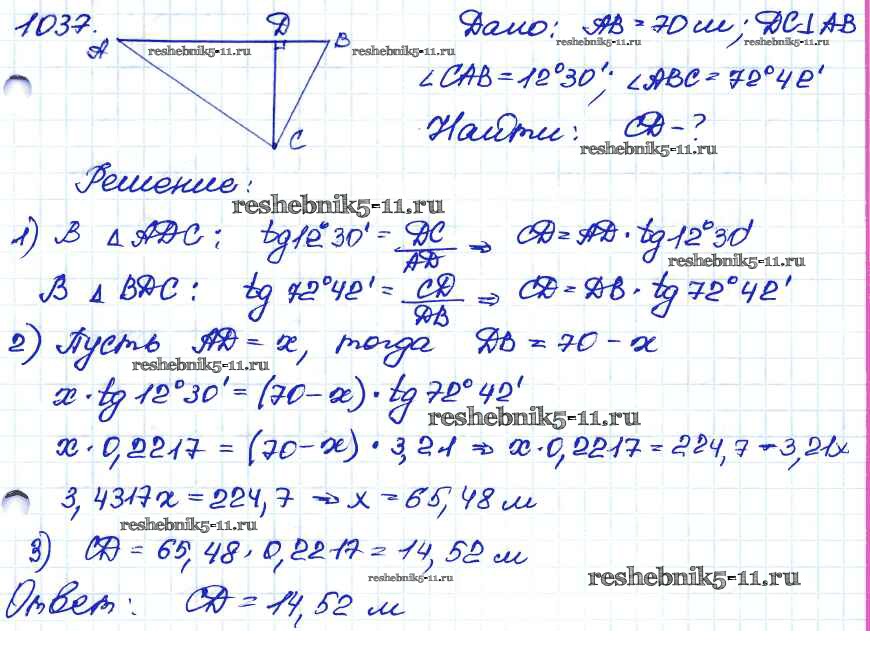 1037.
A D B C
Дано: AB = 70 м; DC⊥AB
∠CAB = 12°30'; ∠ABC = 72°42'
Найти: CD - ?
reshebnik5-11.ru reshebnik5-11.ru reshebnik5-11.ru
Решение:
reshebnik5-11.ru
1) В △ ADC: tg12°30' = DC/AD ⇒ CD = AD · tg12°30'
reshebnik5-11.ru
В △ BDC: tg 72°42' = CD/DB ⇒ CD = DB · tg 72°42'
2) Пусть AD = x, тогда DB = 70 - x
reshebnik5-11.ru
x · tg 12°30' = (70 - x) · tg 72°42'
reshebnik5-11.ru
x · 0,2217 = (70 - x) · 3,21 ⇒ x · 0,2217 = 224,7 - 3,21x
3,4317x = 224,7 ⇒ x = 65,48 м
reshebnik5-11.ru
3) CD = 65,48 · 0,2217 = 14,52 м
reshebnik5-11.ru reshebnik5-11.ru
Ответ: CD = 14,52 м